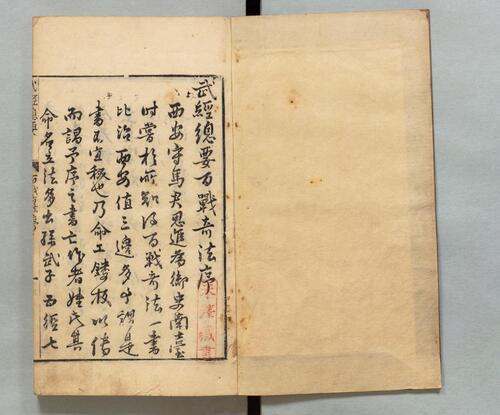 武經總要百戰奇法序
西安守馬君思進為御史南臺
時嘗於所知得百戰奇法一書
比治西安值三邊多事謂是
書不宜秘也乃命工鏤板以傳
而謁予序之書亡作者姓氏其
命名立法多出孫武子西經七
武經總要 百戰奇序 一